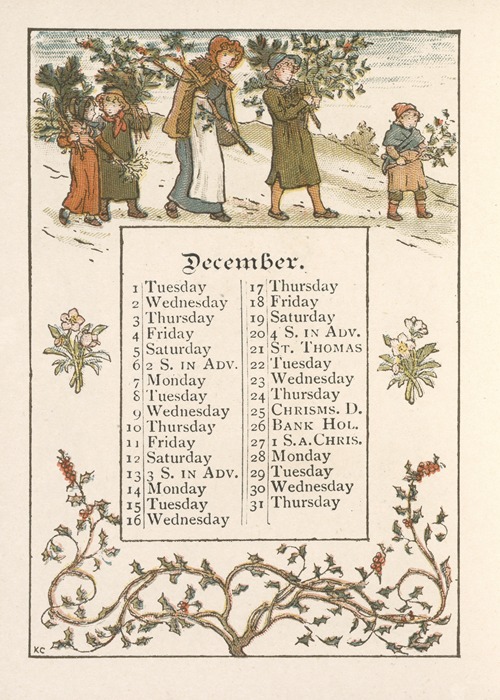 December.
1 Tuesday
2 Wednesday
3 Thursday
4 Friday
5 Saturday
6 2 S. IN ADV.
7 Monday
8 Tuesday
9 Wednesday
10 Thursday
11 Friday
12 Saturday
13 3 S. IN ADV.
14 Monday
15 Tuesday
16 Wednesday
17 Thursday
18 Friday
19 Saturday
20 4 S. IN ADV.
21 ST. THOMAS
22 Tuesday
23 Wednesday
24 Thursday
25 CHRISMS. D.
26 BANK HOL.
27 1 S.A.CHRIS.
28 Monday
29 Tuesday
30 Wednesday
31 Thursday
KG